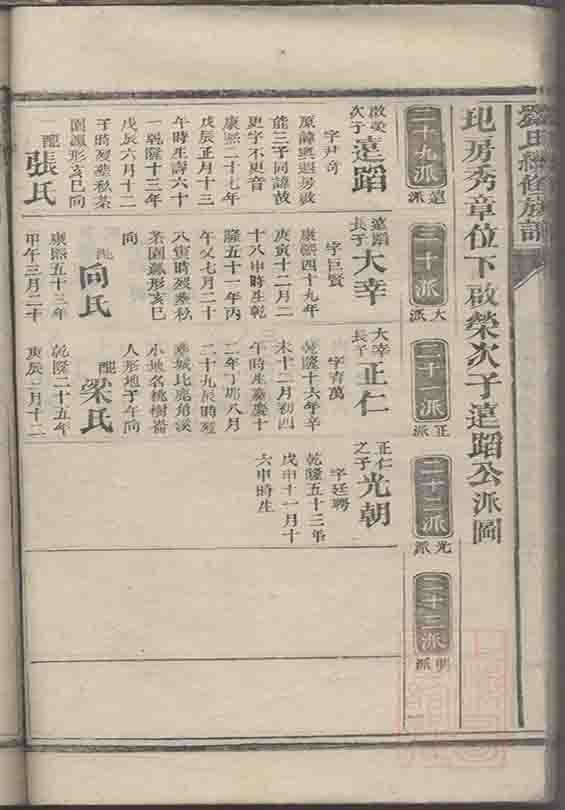 氏續修族譜
玘房秀章位下啟榮次子遠蹈公派圖
二十九派
遠派
啟榮次子遠蹈
字尹奇
原諱與遐房啟
能三子同諱故
更字不更音
康熙二十七年
戊辰正月十三
午時生壽六十
一乾隆十三年
戊辰六月十二
子時歿葬秋茶
園鳳形亥巳向
配張氏
三十派
大派
遠蹈長子大幸
字巨賢
康熙四十九年
庚寅十二月二
十八申時生乾
隆五十一年丙
午又七月二十
八寅時歿葬秋
茶園鳳形亥巳
向
配向氏
康熙五十三年
甲午三月二十
三十一派
正派
大幸長子正仁
字育萬
乾隆十六年辛
未十二月初四
午時生嘉慶十
二年丁卯八月
二十九辰時歿
葬城北鹿角溪
小地名桃樹崙
人形地子午向
配梁氏
乾隆二十五年
庚辰二月十二
三十二派
光派
正仁之子光朝
字廷聘
乾隆五十三年
戊申十一月十
六申時生
三十三派
明派